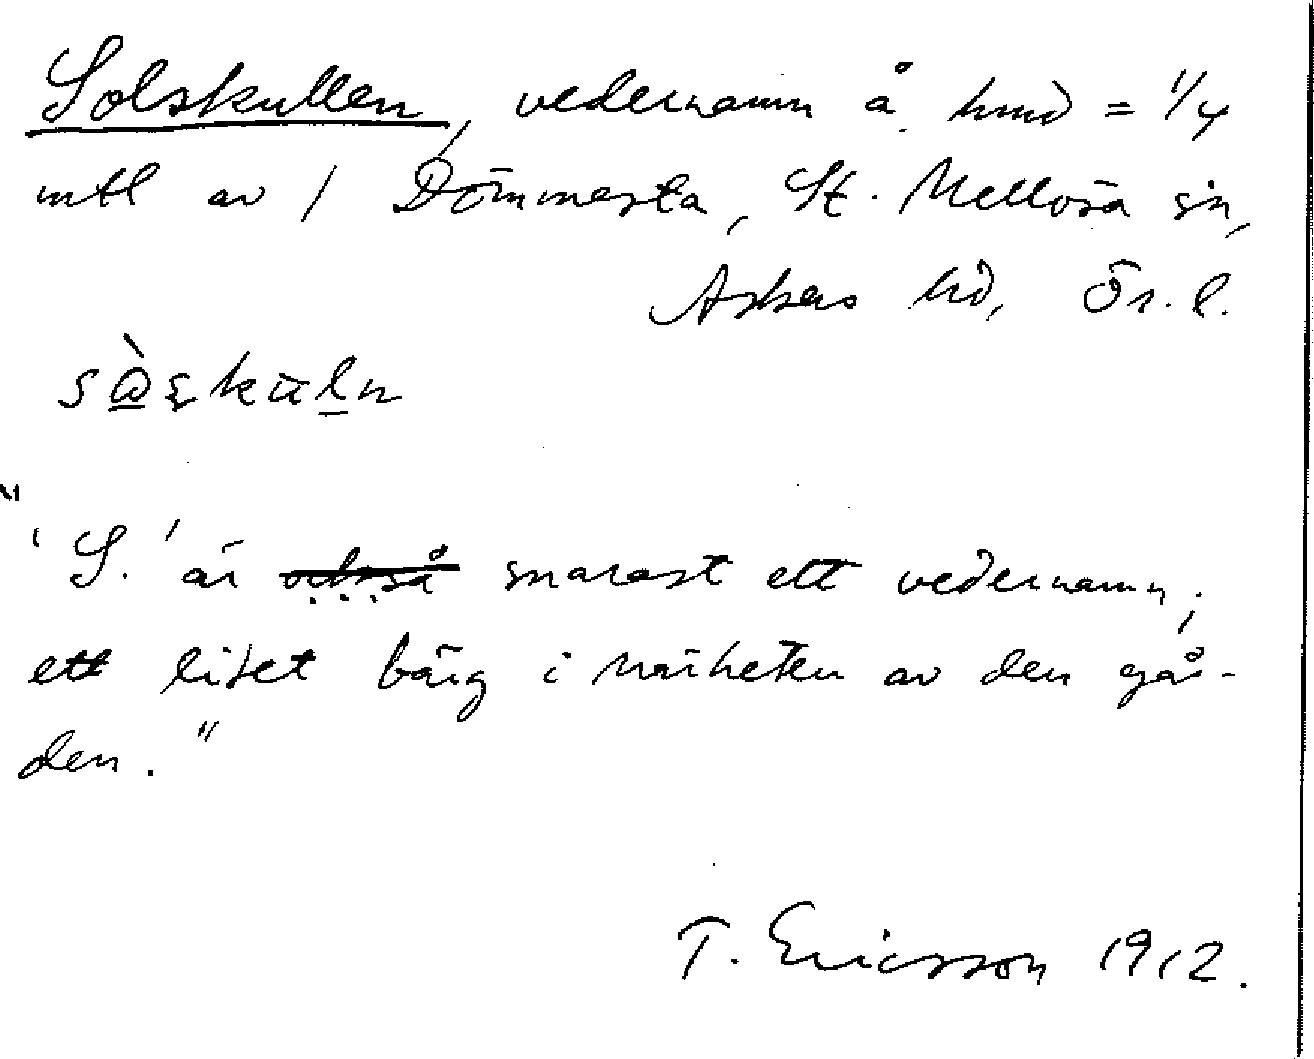 Solskullen, vedernamn å hmd = 1/4
mtl av 1 Dömmesta, St. Mellösa sn,
Askers hd, Ör. l.
"'S.' är också snarast ett vedernamn;
ett litet bärg i närheten av den går-
den."
T. Ericsson 1912.